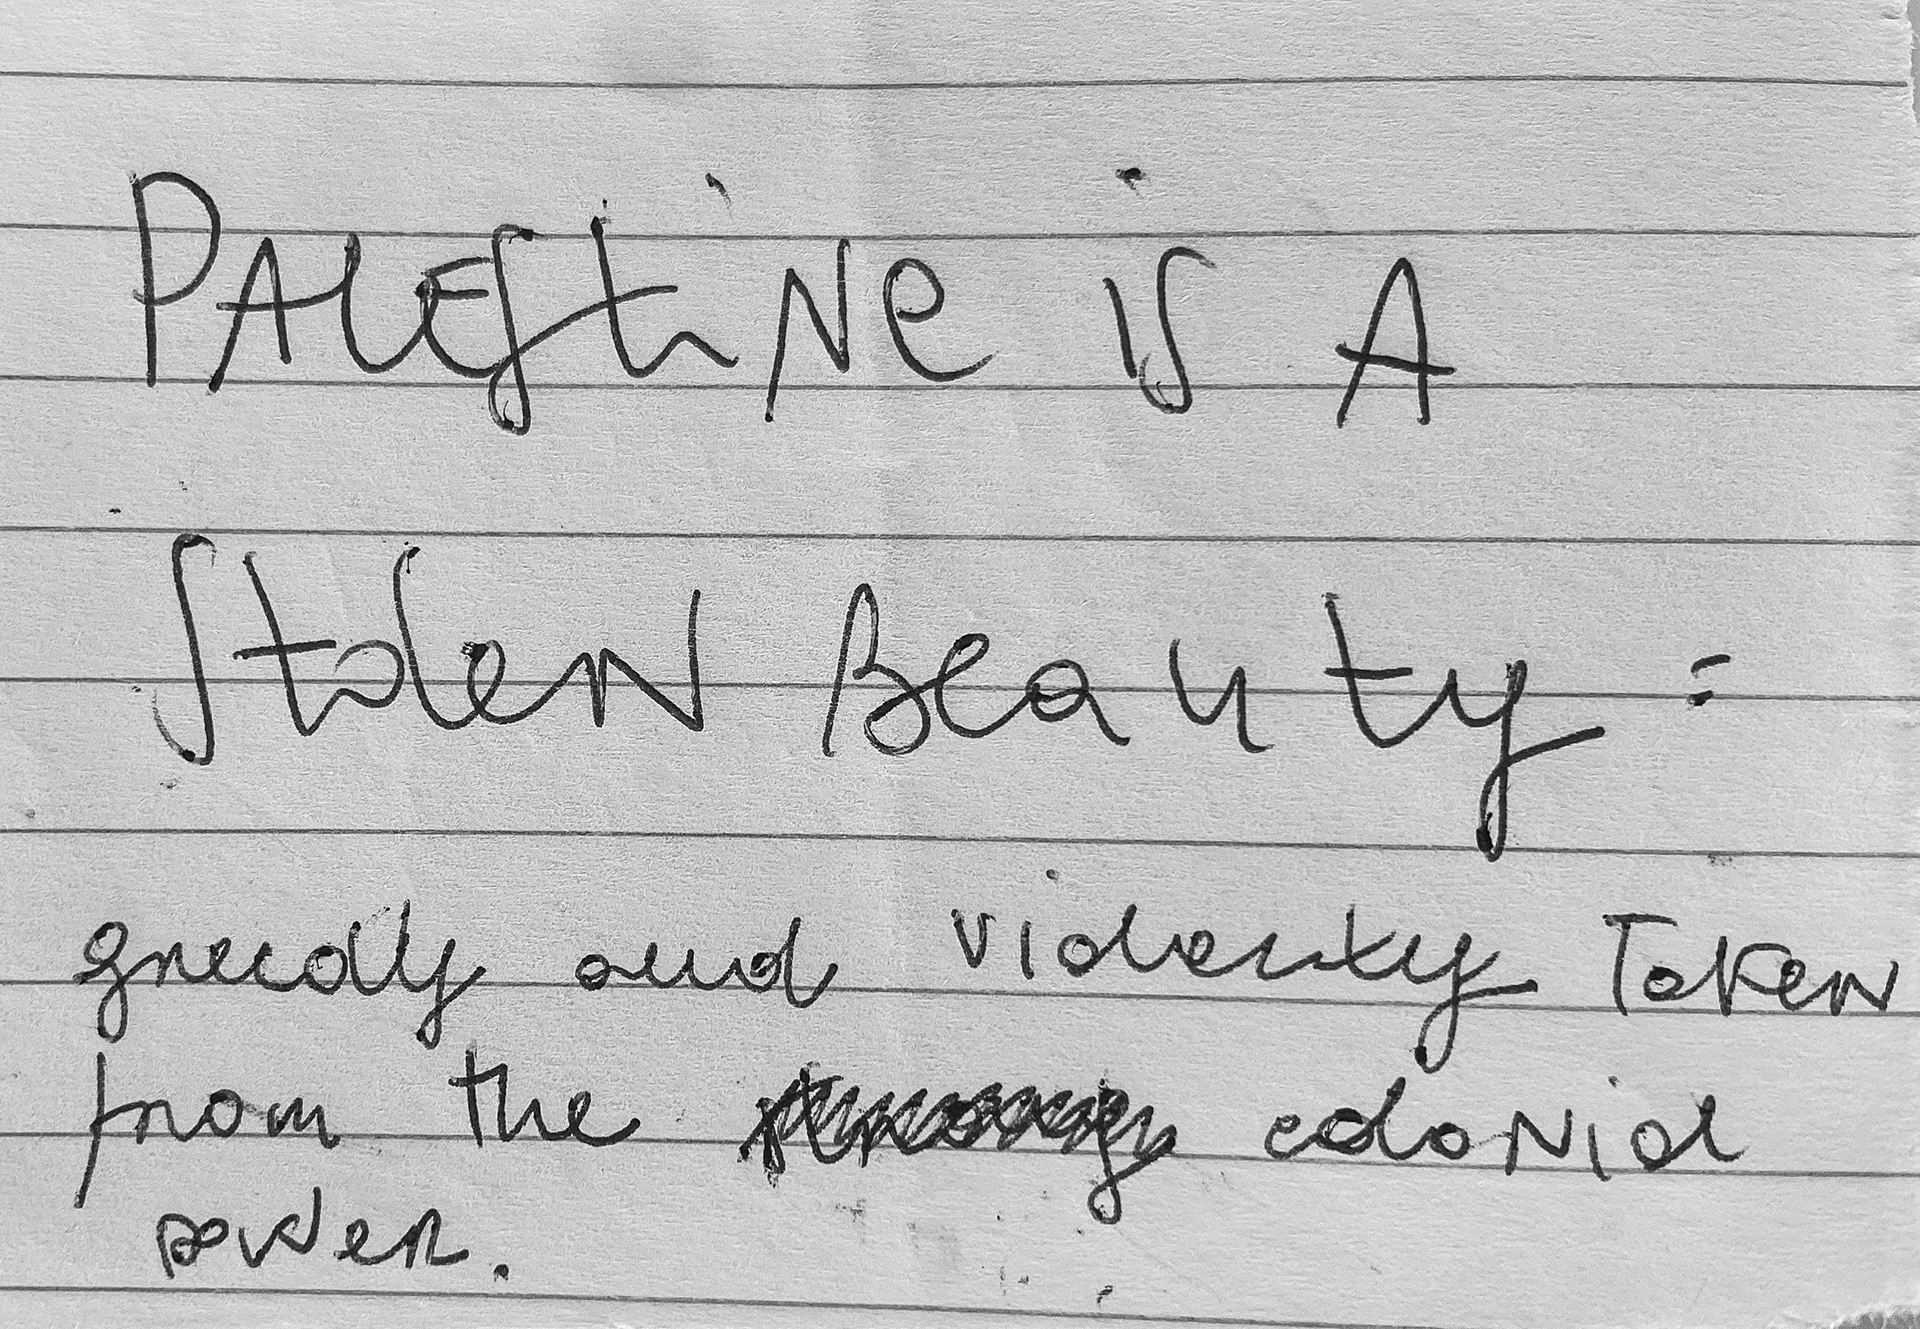 PAlEStiNe is A
StoleN Beauty :
greedly and violently Taken
from the coloNial
power.